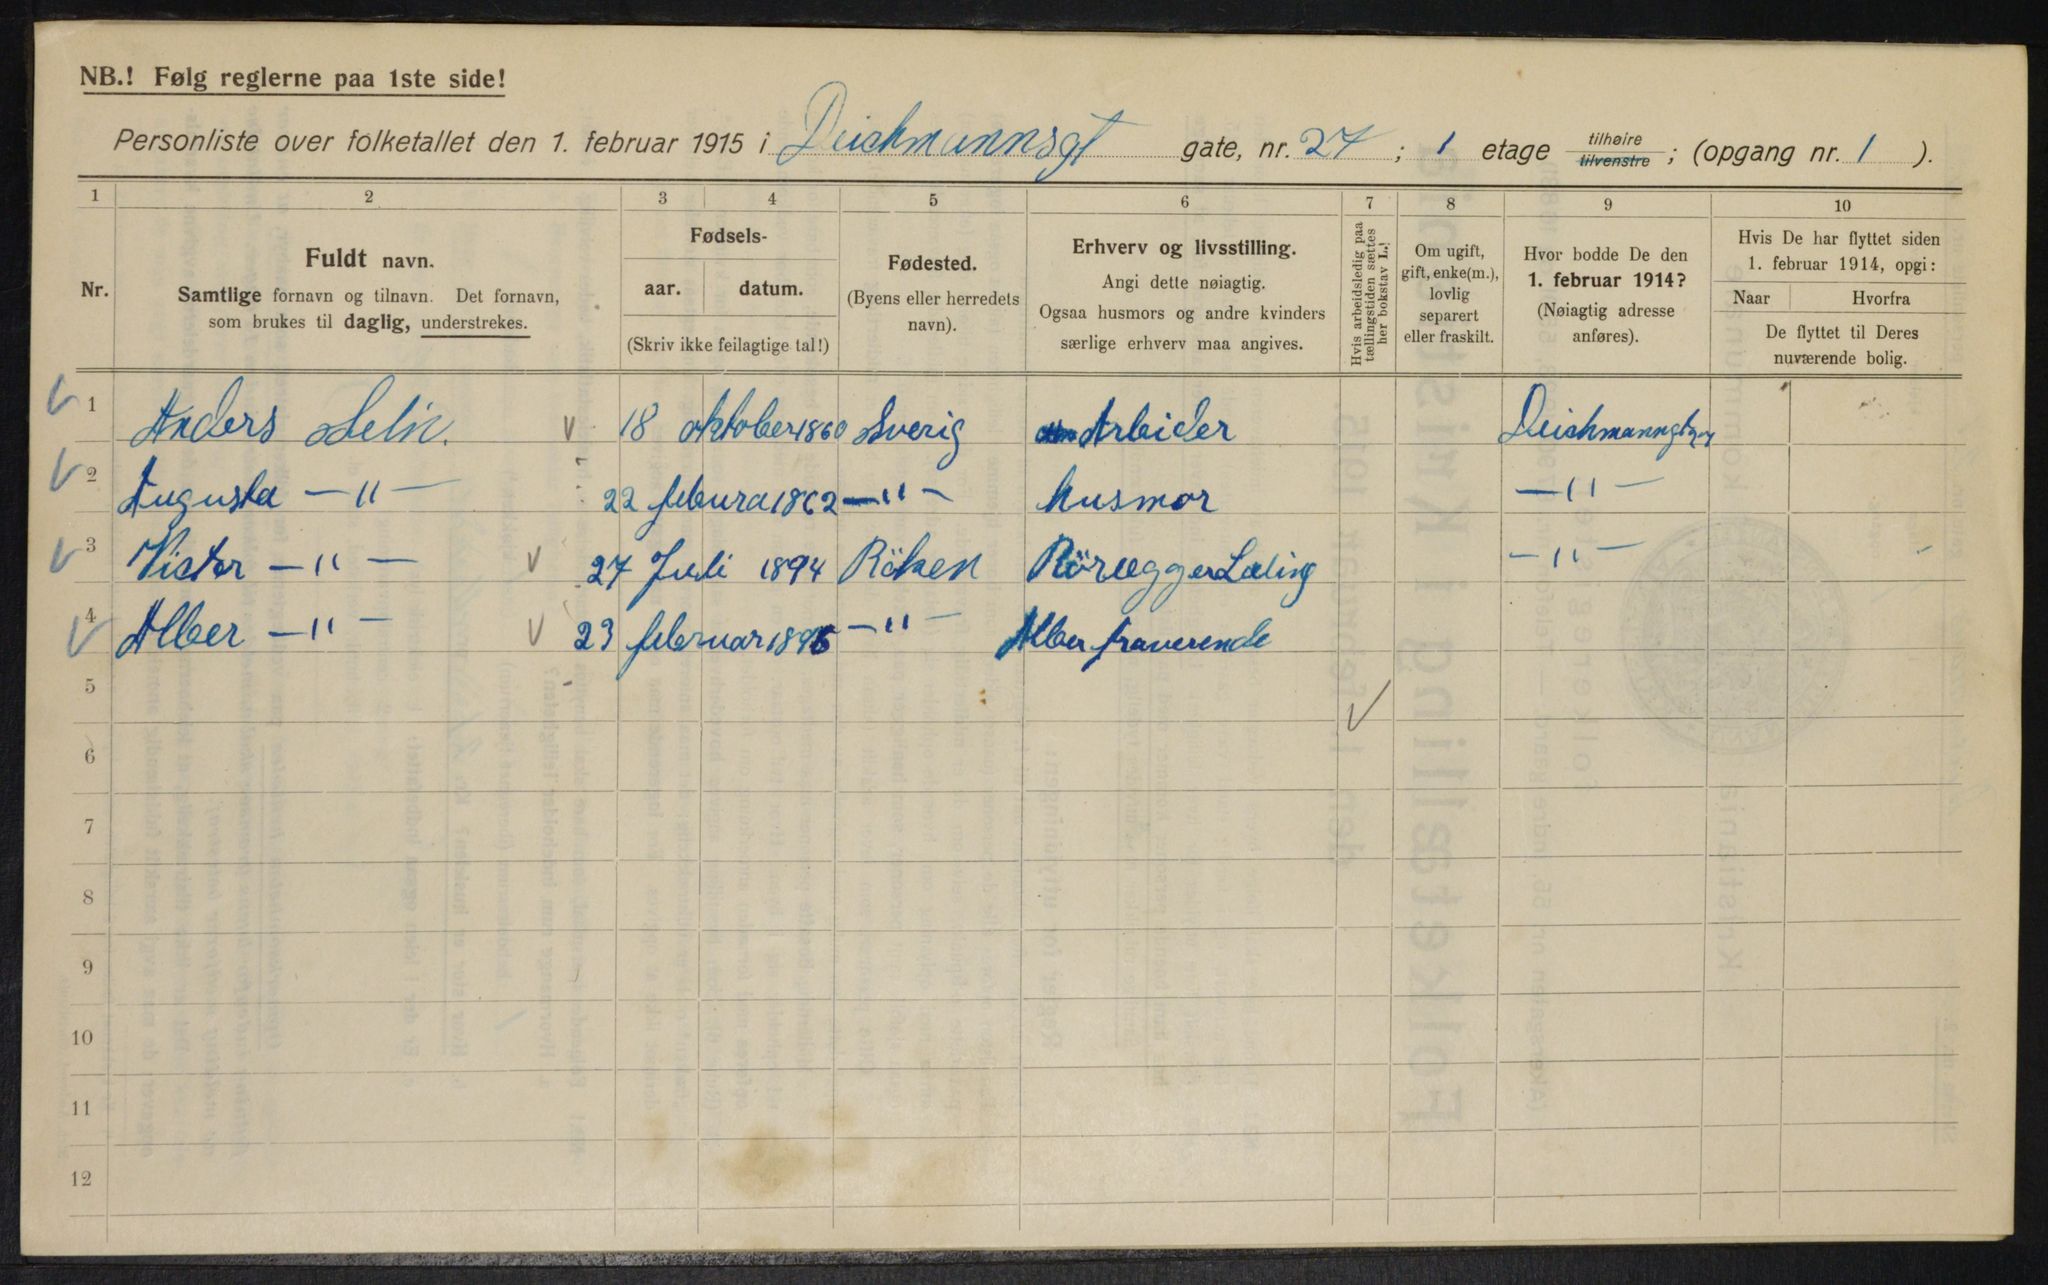 NB.! Følg reglerne paa 1ste side!
Personliste over folketallet den 1. februar 1915 i Deichmannsgt gate, nr. 27 ; 1 etage tilhøire tilvenstre ; (opgang nr. 1 ).
1 2 3 4 5 6 7 8 9 10
Nr.
Fuldt navn.
Samtlige fornavn og tilnavn. Det fornavn,
som brukes til daglig, understrekes.
Fødsels-
aar. datum.
(Skriv ikke feilagtige tal!)
Fødested.
(Byens eller herredets
navn).
Erhverv og livsstilling.
Angi dette nøiagtig.
Ogsaa husmors og andre kvinders
særlige erhverv maa angives.
Hvis arbeidsledig paa
tællingstiden sættes
her bokstav L.!
Om ugift,
gift, enke(m.),
lovlig
separert
eller fraskilt.
Hvor bodde De den
1. februar 1914?
(Nøiagtig adresse
anføres).
Hvis De har flyttet siden
1. februar 1914, opgi:
Naar Hvorfra
De flyttet til Deres
nuværende bolig.
1 Anders Selin. 18 oktober 1860 Sverig Arbeider
2 Augusta —"— 22 febura 1862 —"— husmor —"—
3 Victor —"— 27 Juli 1894 Röken —"—
4 Alber —"— 23 februar 1896 —"— Alber fraverende
5
6
7
8
9
10
11
12